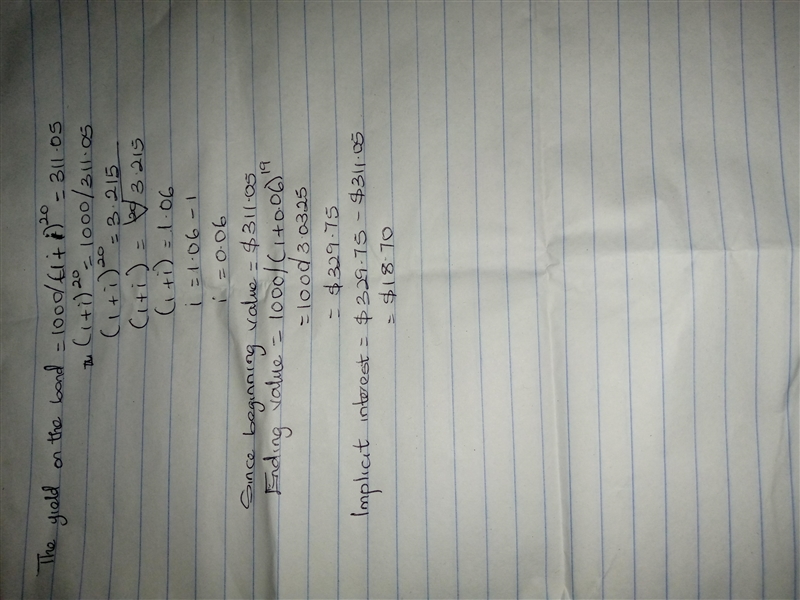 The yield on the bond = 1000/(1+i)^20 = 311.05
(1+i)^20 = 1000/311.05
(1+i)^20 = 3.215
(1+i) = 20√3.215
(1+i) = 1.06
i = 1.06 - 1
i = 0.06
Since beginning value = $311.05
Ending value = 1000/(1+0.06)^19
= 1000/3.0325
= $329.75
Implicit interest = $329.75 - $311.05
= $18.70